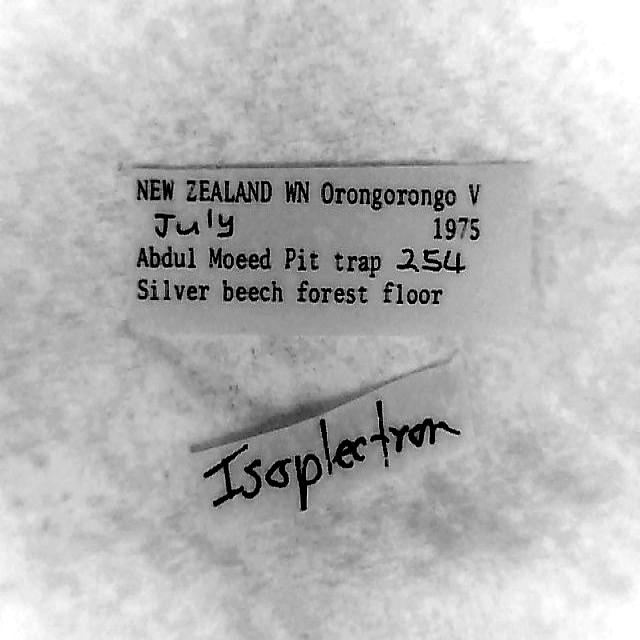 NEW ZEALAND WN Orongorongo V
July 1975
Abdul Moeed Pit trap 254
Silver beech forest floor
Isoplectron